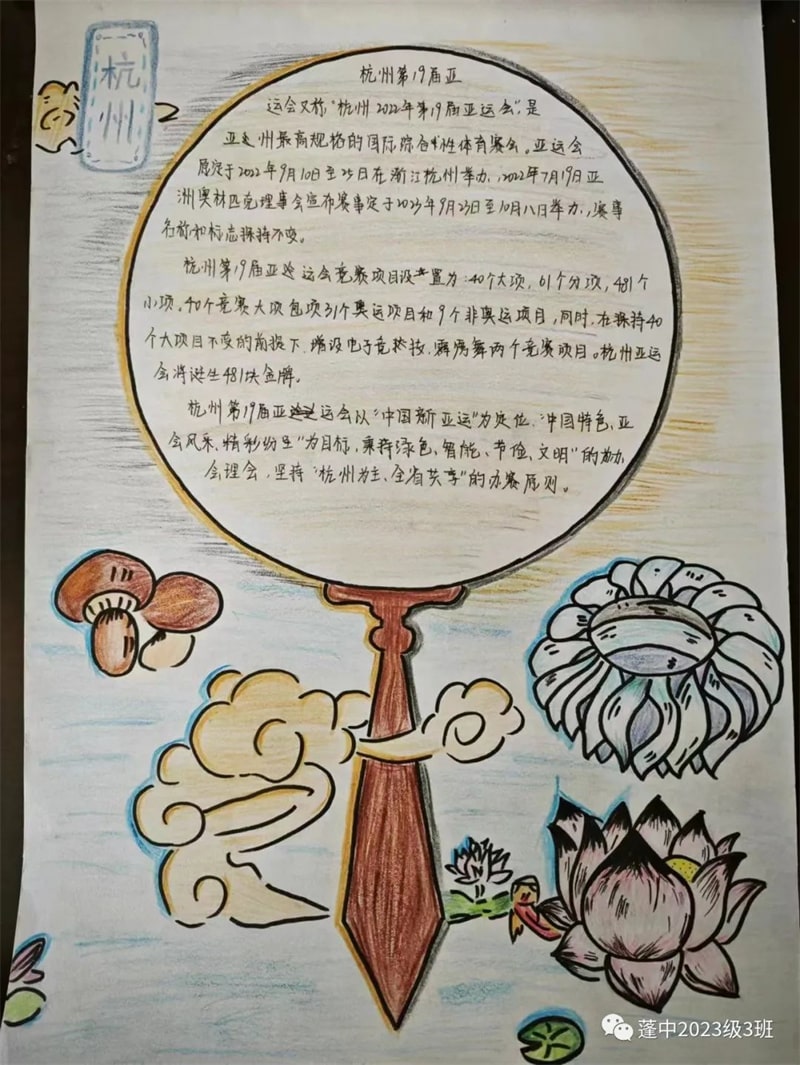 杭州
杭州第19届亚
运会又称“杭州2022年第19届亚运会”,是
亚州最高规格的国际综合性体育赛会。亚运会
原定于2022年9月10日至25日在浙江杭州举办,2022年7月19日亚
洲奥林匹克理事会宣布赛事定于2023年9月23日至10月八日举办,赛事
名称和标志保持不变。
杭州第19届亚运会竞赛项目设置为:40个大项,61个分项,481个
小项。40个竞赛大项包项31个奥运项目和9个非奥运项目,同时,在保持40
个大项目不变的前提下、增设电子竞技、霹雳舞两个竞赛项目。杭州亚运
会将诞生481块金牌。
杭州第19届亚运会以“中国新亚运”为定位、“中国特色、亚
会风采、精彩纷呈”为目标,秉持绿色、智能、节俭、文明”的办
会理会,坚持“杭州为主、全省共享”的办赛原则。
蓬中2023级3班